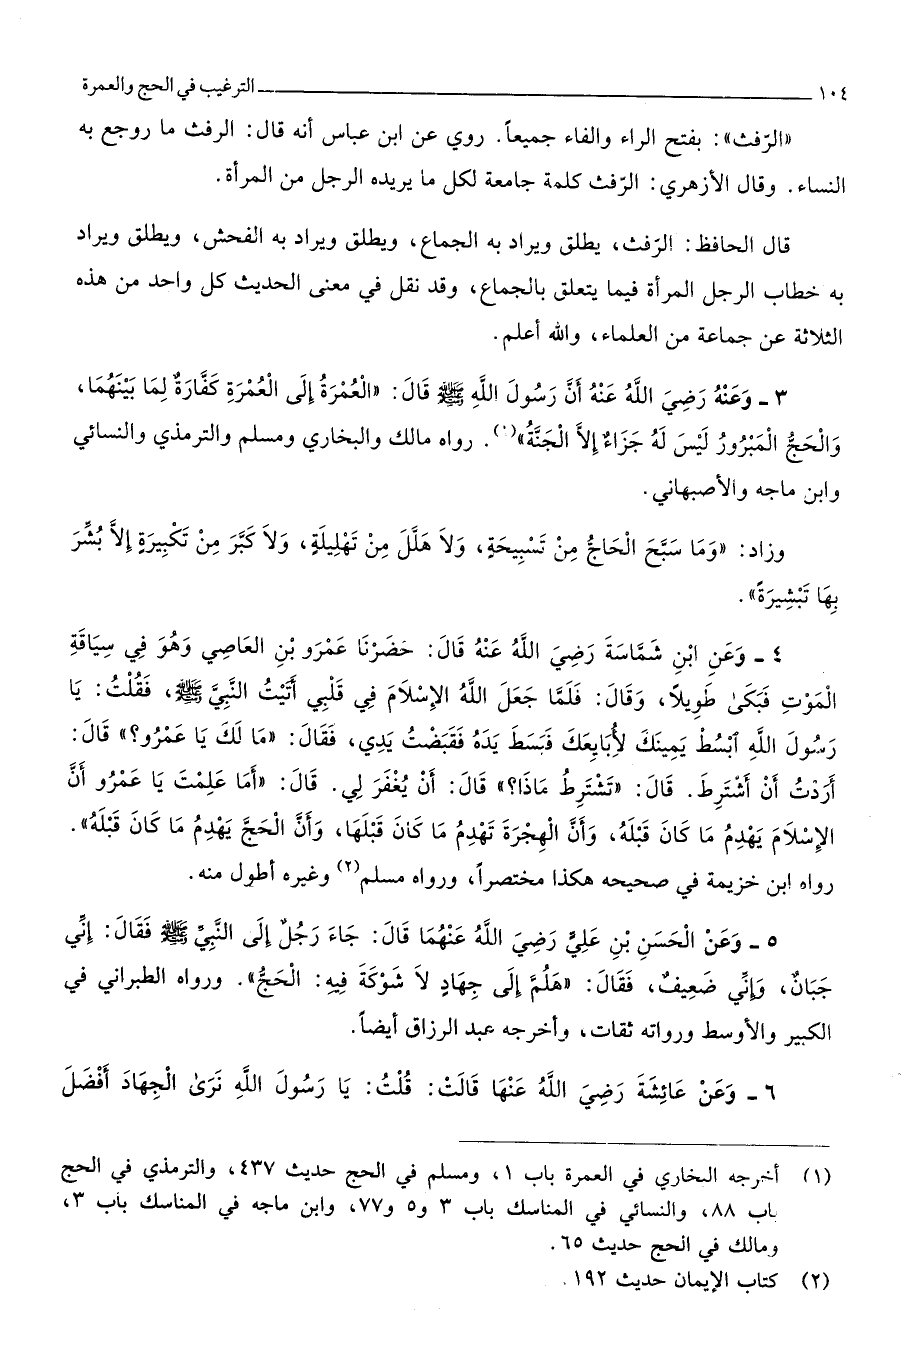 ١٠٤ ــــــــــــــــــــ الترغيب في الحج والعمرة
«الرّفث»: بفتح الراء والفاء جميعاً. روي عن ابن عباس أنه قال: الرفث ما روجع به
النساء. وقال الأزهري: الرّفث كلمة جامعة لكل ما يريده الرجل من المرأة.
قال الحافظ: الرّفث، يطلق ويراد به الجماع، ويطلق ويراد به الفحش، ويطلق ويراد
به خطاب الرجل المرأة فيما يتعلق بالجماع، وقد نقل في معنى الحديث كل واحد من هذه
الثلاثة عن جماعة من العلماء، والله أعلم.
٣ ـ وَعَنْهُ رَضِيَ اللَّهُ عَنْهُ أَنَّ رَسُولَ اللَّهِ ﷺ قَالَ: «الْعُمْرَةُ إِلَى الْعُمْرَةِ كَفَّارَةٌ لِمَا بَيْنَهُمَا،
وَالْحَجُّ الْمَبْرُورُ لَيْسَ لَهُ جَزَاءٌ إِلاَّ الْجَنَّةُ»(١). رواه مالك والبخاري ومسلم والترمذي والنسائي
وابن ماجه والأصبهاني.
وزاد: «وَمَا سَبَّحَ الْحَاجُّ مِنْ تَسْبِيحَةٍ، وَلاَ هَلَّلَ مِنْ تَهْلِيلَةٍ، وَلاَ كَبَّرَ مِنْ تَكْبِيرَةٍ إِلاَّ بُشِّرَ
بِهَا تَبْشِيرَةً».
٤ ـ وَعَنِ ابْنِ شَمَّاسَةَ رَضِيَ اللَّهُ عَنْهُ قَالَ: حَضَرْنَا عَمْرَو بْنِ العَاصِي وَهُوَ فِي سِيَاقَةِ
الْمَوْتِ فَبَكَىٰ طَوِيلاً، وَقَالَ: فَلَمَّا جَعَلَ اللَّهُ الإِسْلاَمَ فِي قَلْبِي أَتَيْتُ النَّبِيَّ ﷺ، فَقُلْتُ: يَا
رَسُولَ اللَّهِ ٱبْسُطْ يَمِينَكَ لأُبَايِعَكَ فَبَسَطَ يَدَهُ فَقَبَضْتُ يَدِي، فَقَالَ: «مَا لَكَ يَا عَمْرُو؟» قَالَ:
أَرَدْتُ أَنْ أَشْتَرِطَ. قَالَ: «تَشْتَرِطُ مَاذَا؟» قَالَ: أَنْ يُغْفَرَ لِي. قَالَ: «أَمَا عَلِمْتَ يَا عَمْرُو أَنَّ
الإِسْلاَمَ يَهْدِمُ مَا كَانَ قَبْلَهُ، وَأَنَّ الْهِجْرَةَ تَهْدِمُ مَا كَانَ قَبْلَهَا، وَأَنَّ الْحَجَّ يَهْدِمُ مَا كَانَ قَبْلَهُ».
رواه ابن خزيمة في صحيحه هكذا مختصراً، ورواه مسلم(٢) وغيره أطول منه.
٥ ـ وَعَنْ الْحَسَنِ بْنِ عَلِيٍّ رَضِيَ اللَّهُ عَنْهُمَا قَالَ: جَاءَ رَجُلٌ إِلَى النَّبِيِّ ﷺ فَقَالَ: إِنِّي
جَبَانٌ، وَإِنِّي ضَعِيفٌ، فَقَالَ: «هَلُمَّ إِلَى جِهَادٍ لاَ شَوْكَةَ فِيهِ: الْحَجُّ». ورواه الطبراني في
الكبير والأوسط ورواته ثقات، وأخرجه عبد الرزاق أيضاً.
٦ ـ وَعَنْ عَائِشَةَ رَضِيَ اللَّهُ عَنْهَا قَالَتْ: قُلْتُ: يَا رَسُولَ اللَّهِ نَرَىٰ الْجِهَادَ أَفْضَلَ
(١) أخرجه البخاري في العمرة باب ١، ومسلم في الحج حديث ٤٣٧، والترمذي في الحج
باب ٨٨، والنسائي في المناسك باب ٣ و٥ و٧٧، وابن ماجه في المناسك باب ٣،
ومالك في الحج حديث ٦٥.
(٢) كتاب الإيمان حديث ١٩٢.